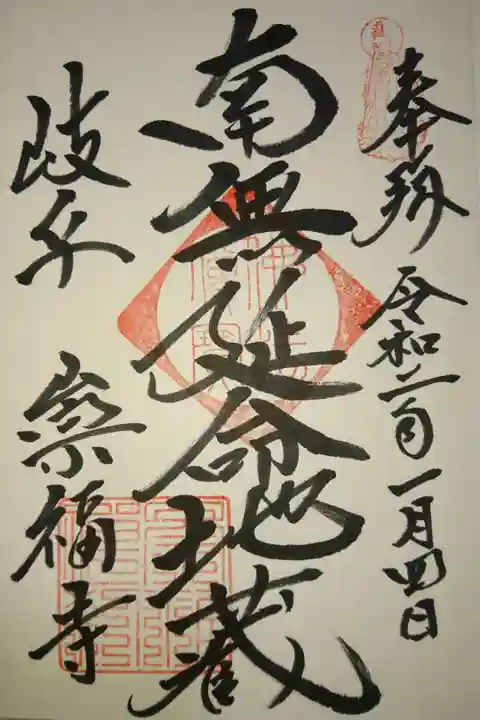 奉拝 令和二年一月四日
南無延命地蔵
岐阜 崇福寺
佛法僧寶